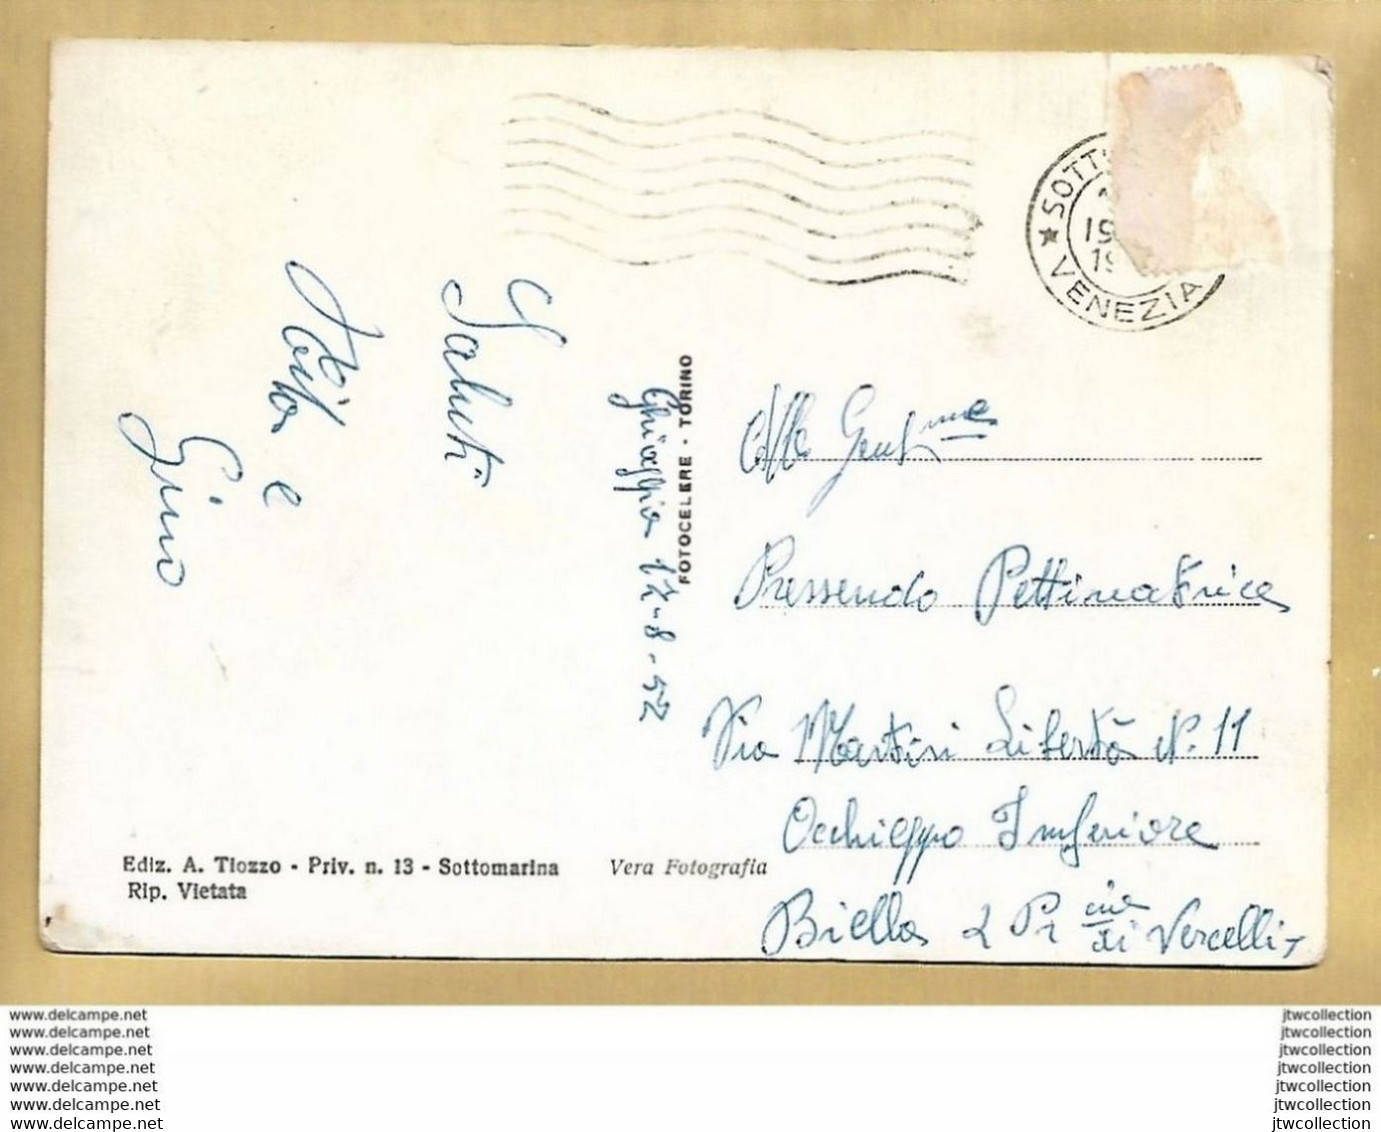 ★ SOTT
VENEZIA
19
19
Saluti
e
Gino
Chioggia 17-8-52
FOTOCELERE - TORINO
Alla Gent.me
Pressendo Pettinatrice
Via Martiri Libertà N. 11
Occhieppo Inferiore
Biella
di Vercelli
Ediz. A. Tiozzo - Priv. n. 13 - Sottomarina
Vera Fotografia
Rip. Vietata
www.delcampe.net
www.delcampe.net
www.delcampe.net
www.delcampe.net
www.delcampe.net
www.delcampe.net
www.delcampe.net
jtwcollection
jtwcollection
jtwcollection
jtwcollection
jtwcollection
jtwcollection
jtwcollection